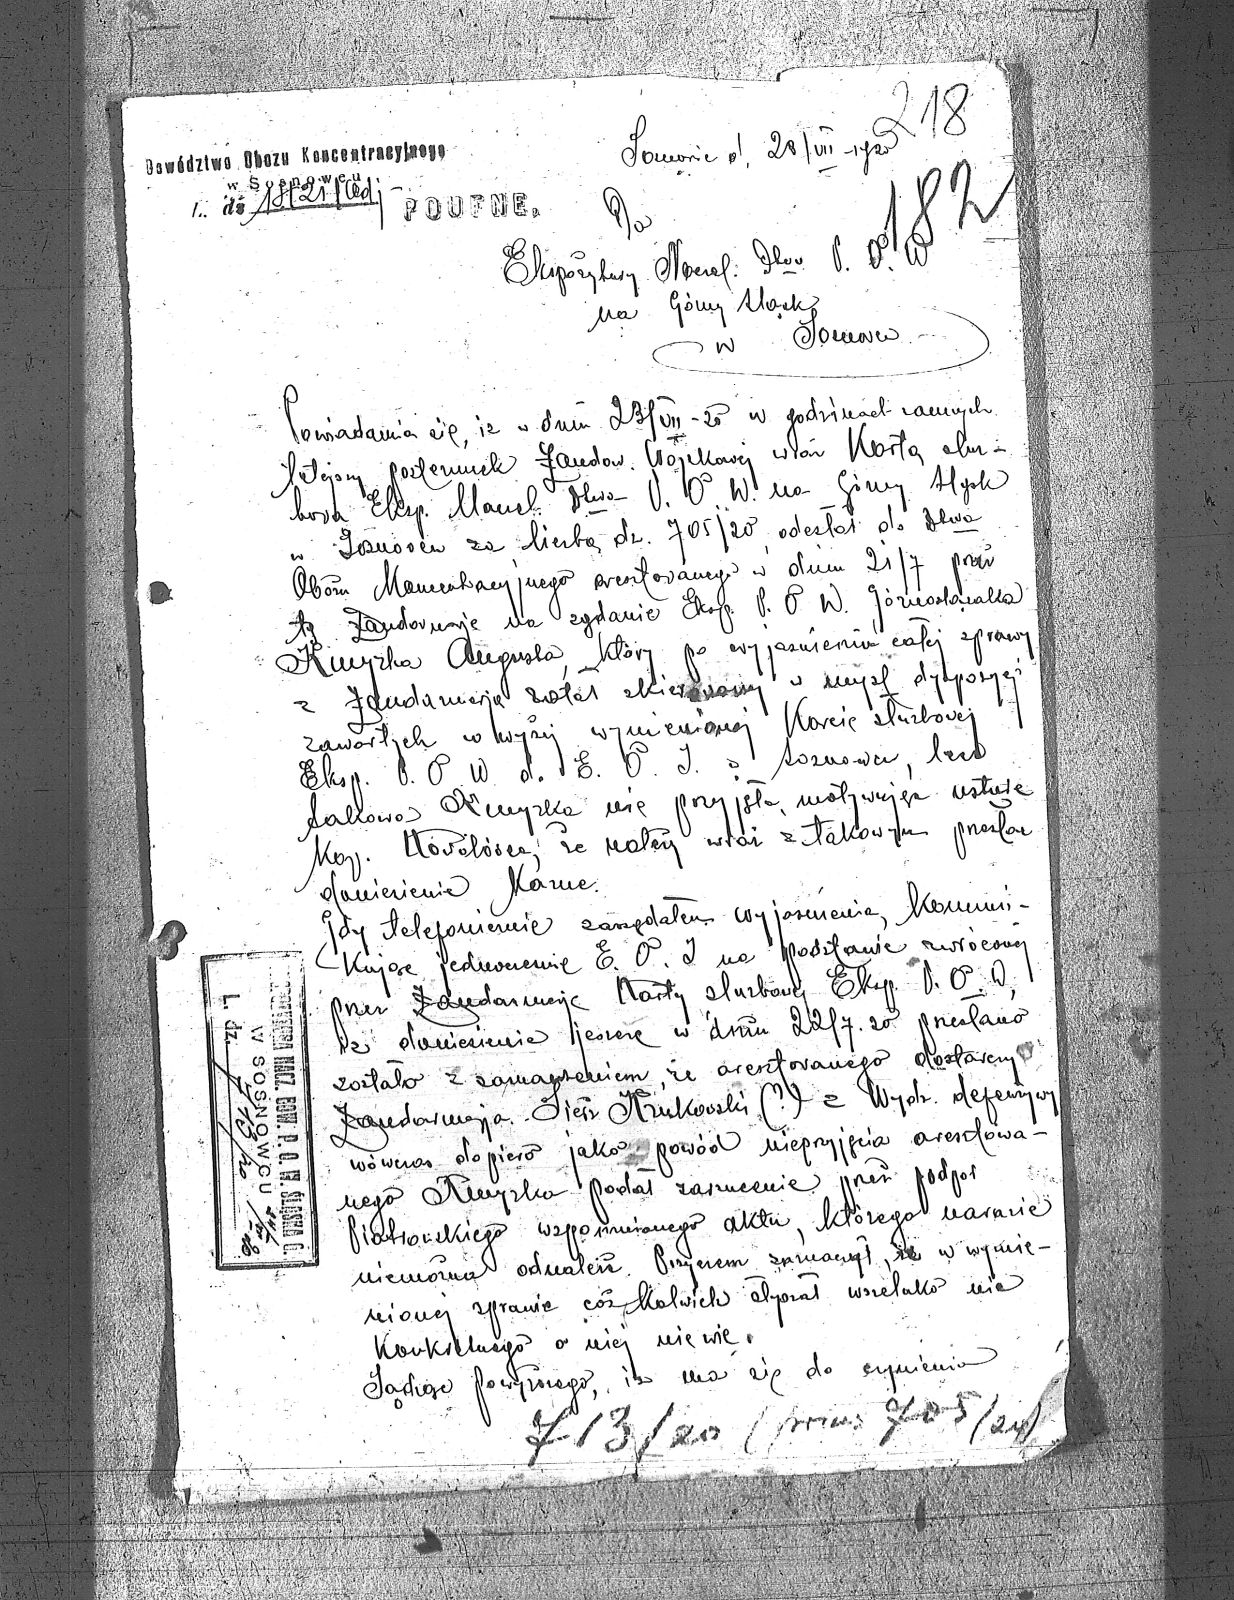 218
Dowództwo Obozu Koncentracyjnego
w Sosnowcu
L. dz 18/21/Adj
POUFNE.
d, 28/VII 1920
182
Do
Ekspozytury Dtwa P. O. W
na Górny Śląsk
w Sosnowcu
Powiadamia się, iż w dniu 23/VII-20 w godzinach rannych
tutejszy posterunek Żandar. Wojskowej wraz Kartą służ-
bową Eksp. Dtwa P. O W. na Górny Śląsk
w Sosnowcu za liczbą dz. 705/20 odesłał do Dtwa
Obozu Koncentracyjnego aresztowanego w dniu 21/7 przez
tą Żandarmerję na żądanie Eksp. P. O W. Górnoślązaka
Kmyzka Augusta, który po wyjaśnieniu całej sprawy
z Żandarmerją został skierowany w myśl dyspozycji
zawartych w wyżej wymienionej Karcie służbowej
Eksp. P. O W do E. O I. w Sosnowcu, lecz
takowa Kmyzka nie przyjęła, motywując ustnie
że należy wraz z takowym przesłać
doniesienie Karne.
Gdy telefonicznie zażądałem wyjaśnienia, Komuni-
kując jednocześnie E. O. I na podstawie zwróconej
przez Żandarmerję Karty służbowej Eksp. P. O. W,
iż doniesienie jeszcze w dniu 22/7.20 przesłano
zostało z zaznaczeniem, że aresztowanego dostarczy
Żandarmerja. Sierż Krukowski (?) z Wydz. defenzywy
wówczas dopiero jako powód nieprzyjęcia aresztowa-
nego Kmyzka podał zarzucenie przez podpor
Piotrowskiego wspomnianego aktu, którego narazie
niemożna odnaleźć. Przyczem zaznaczył, że w wymie-
nionej sprawie cośkolwiek słyszał wszelako nic
Konkretnego o niej nie wie.
Sądząc powyższego, iż ma się do czynienia
713/20 / 705/20
EKSPOZYTURA NACZ. DOW. P. O. W. ŚLĄSKA G.
W SOSNOWCU
L. dz. 713/20